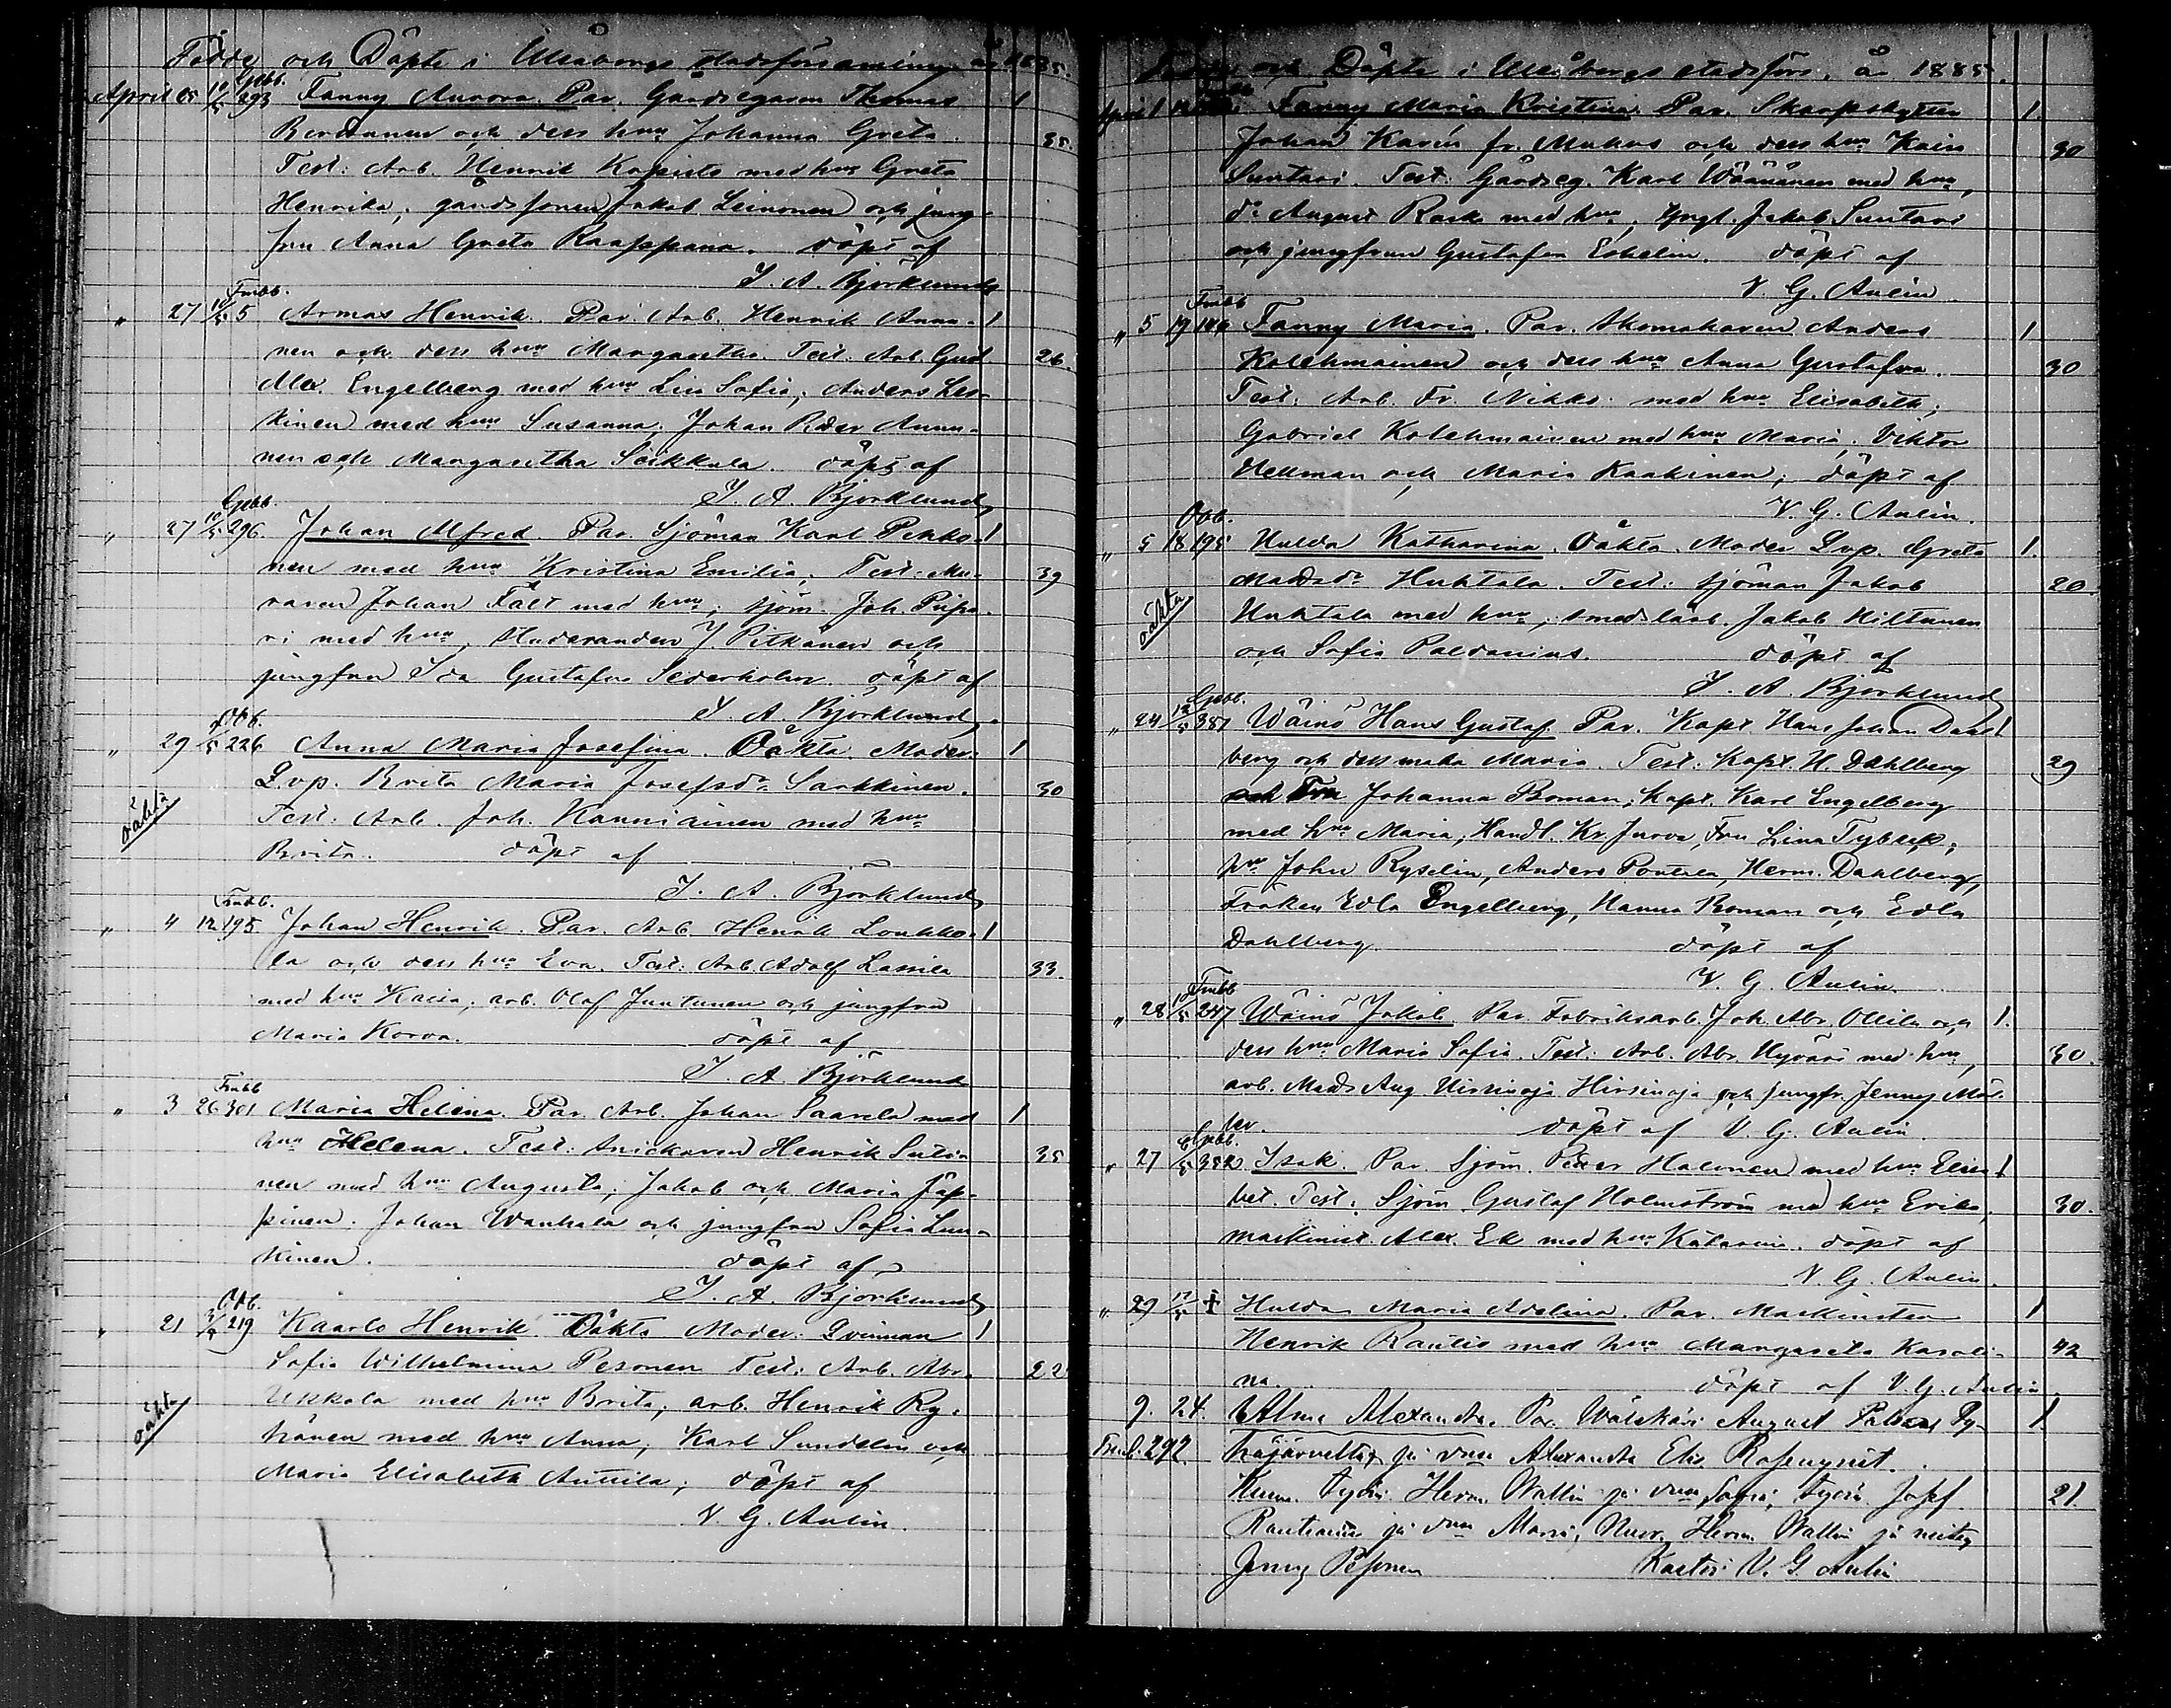 Födde och Döpte i Uleåborgs stadsförsamling år 1885.
Gebb.
April 05 10/5 293 Fanny Aurora. Par. Gårdsegaren Thomas 1
och dess hu Johanna Greta. 35.
Test: Arb. Henrik Kopisto med hu Greta
Henrika, gårdssonen Jakob Leinonen och jung-
frun Anna Greta Kaappana. döpt af
J. A. Björklund
Frubb.
„ 27 10/5 5 Armas Henrik. Par. Arb. Henrik Annu- 1
nen och dess hu Margaretha. Test. Arb. Gust 26.
Alex. Engelberg med hu Lisa Sofia; Anders Les-
kinen med hu Susanna; Johan Peter Annu-
nen och Margaretha Seikkula. döpt af
J. A. Björklund
Gebb.
„ 27 10/5 296 Johan Alfred. Par. Sjöman Karl Pekko- 1
nen med hu Kristina Emilia; Test: Mu- 39
raren Johan Fält med hu; sjöm. Joh. Piipa-
ri med hu, studeranden J. Pitkänen och
jungfrun Ida Gustafva Sederholm. döpt af
J. A. Björklund
Obb.
„ 29 /5 226 Anna Maria Josefina. Oäkta. Moder: 1
Lvp. Brita Maria Josefsdr Sarkkinen. 30
oäkta
Test: Arb. Joh. Kanniainen med hu
Brita. döpt af
J. A. Björklund
Frubb.
„ 4 12 195 Johan Henrik. Par. Arb. Henrik Loukko- 1
la och dess hu Eva. Test: Arb. Adolf Lassila 33.
med hu Kaisa; arb. Olof Juntunen och jungfrun
Maria Korva. döpt af
J. A. Björklund
Frubb
„ 3 26 301 Maria Helena. Par. Arb. Johan Saarela med 1
hu Helena. Test: Snickaren Henrik Suti- 35
nen med hu Augusta; Jakob och Maria Jäp-
pinen. Johan Wanhala och jungfrun Sofia Lun-
kinen. döpt af
J. A. Björklund
Obb.
„ 21 3/5 219 Kaarlo Henrik Oäkta Moder: Qvinnan 1
Sofia Wilhelmina Pesonen Test: Arb. Abr. 22
Ukkola med hu Brita; arb. Henrik Ry-
oäkta
hänen med hu Anna; Karl Sundelin och
Maria Elisabeth Anttila; döpt af
V. G. Aulin.
Födde och Döpte i Uleåborgs stadsförs. år 1885.
April 1 Fanny Maria Kristina. Par. Skarpskytten 1.
Johan Karin fr. Muhos och dess hu Kaisa 30
Suutari. Test: Gårdseg. Karl Wäänänen med hu,
do August Rask med hu, Yngl. Jakob Suutari
och jungfrun Gustafva Eskelin. döpt af
V. G. Aulin.
Frubb
„ 5 19 186 Fanny Maria. Par. Skomakaren Anders 1
Kolehmainen och dess hu Anna Gustafva. 30
Test: Arb. Fr. Nikko med hu Elisabeth;
Gabriel Kolehmainen med hu Maria; Viktor
Hellman och Maria Kaakinen; döpt af
V. G. Aulin.
Obb.
„ 5 18 195 Hulda Katharina. Oäkta. Moder Lvp. Greta 1.
Madsdr Huhtala. Test: sjöman Jakob 20.
oäkta
Huhtala med hu, smedslärl. Jakob Hiltunen
och Sofia Paldanius. döpt af
J. A. Björklund
Gebb.
„ 24 12/5 381 Wäinö Hans Gustaf. Par. Kapt. Hans Johan Dahl- 1
berg och dess maka Maria. Test: Kapt. H. Dahlberg 29
och Fru Johanna Boman; Kapt. Karl Engelberg
med hu Maria, Handl. Kr. Jurva, Fru Lina Tybeck;
hr John Ryselin, Anders Pentela, Herm. Dahlberg,
Fröken Edla Engelberg, Hanna Boman och Edla
Dahlberg döpt af
V. G. Aulin.
Frubb
„ 28 10/5 247 Wäinö Jakob. Par. Fabriksarb. Joh. Abr. Ollila och 1.
dess hu Maria Sofia. Test: Arb. Abr. Hyväri med hu, 30.
arb. Mads Aug. Hirsinoja och Jungfr. Jenny Mö-
ler. döpt af V. G. Aulin
Gebb.
„ 27 6/5 382 Isak. Par. Sjöm. Peter Halonen med hu Elisa- 1
bet. Test. Sjöm. Gustaf Holmström med hu Erika, 30.
maskinist Alex. Ek med hu Katarina. döpt af
V. G. Aulin.
„ 29 12/5 ‡ Hulda Maria Adelina. Par. Maskinisten 1
Henrik Rautio med hu Margareta Karoli- 42
na. döpt af V. G. Aulin
9. 24. Alma Alexandra. Par. Wälskäri August Py- 1
292. häjärveltä ja vmo Alexandra Elis. Rosenqvist.
Kumm. työm. Herm. Wallin ja vmo Sofia; työm. Josef 21.
Rautiainen ja vmo Maria, Nuor. Herm. Wallin ja neitsy
Jenny Pesonen Kastoi V. G. Aulin